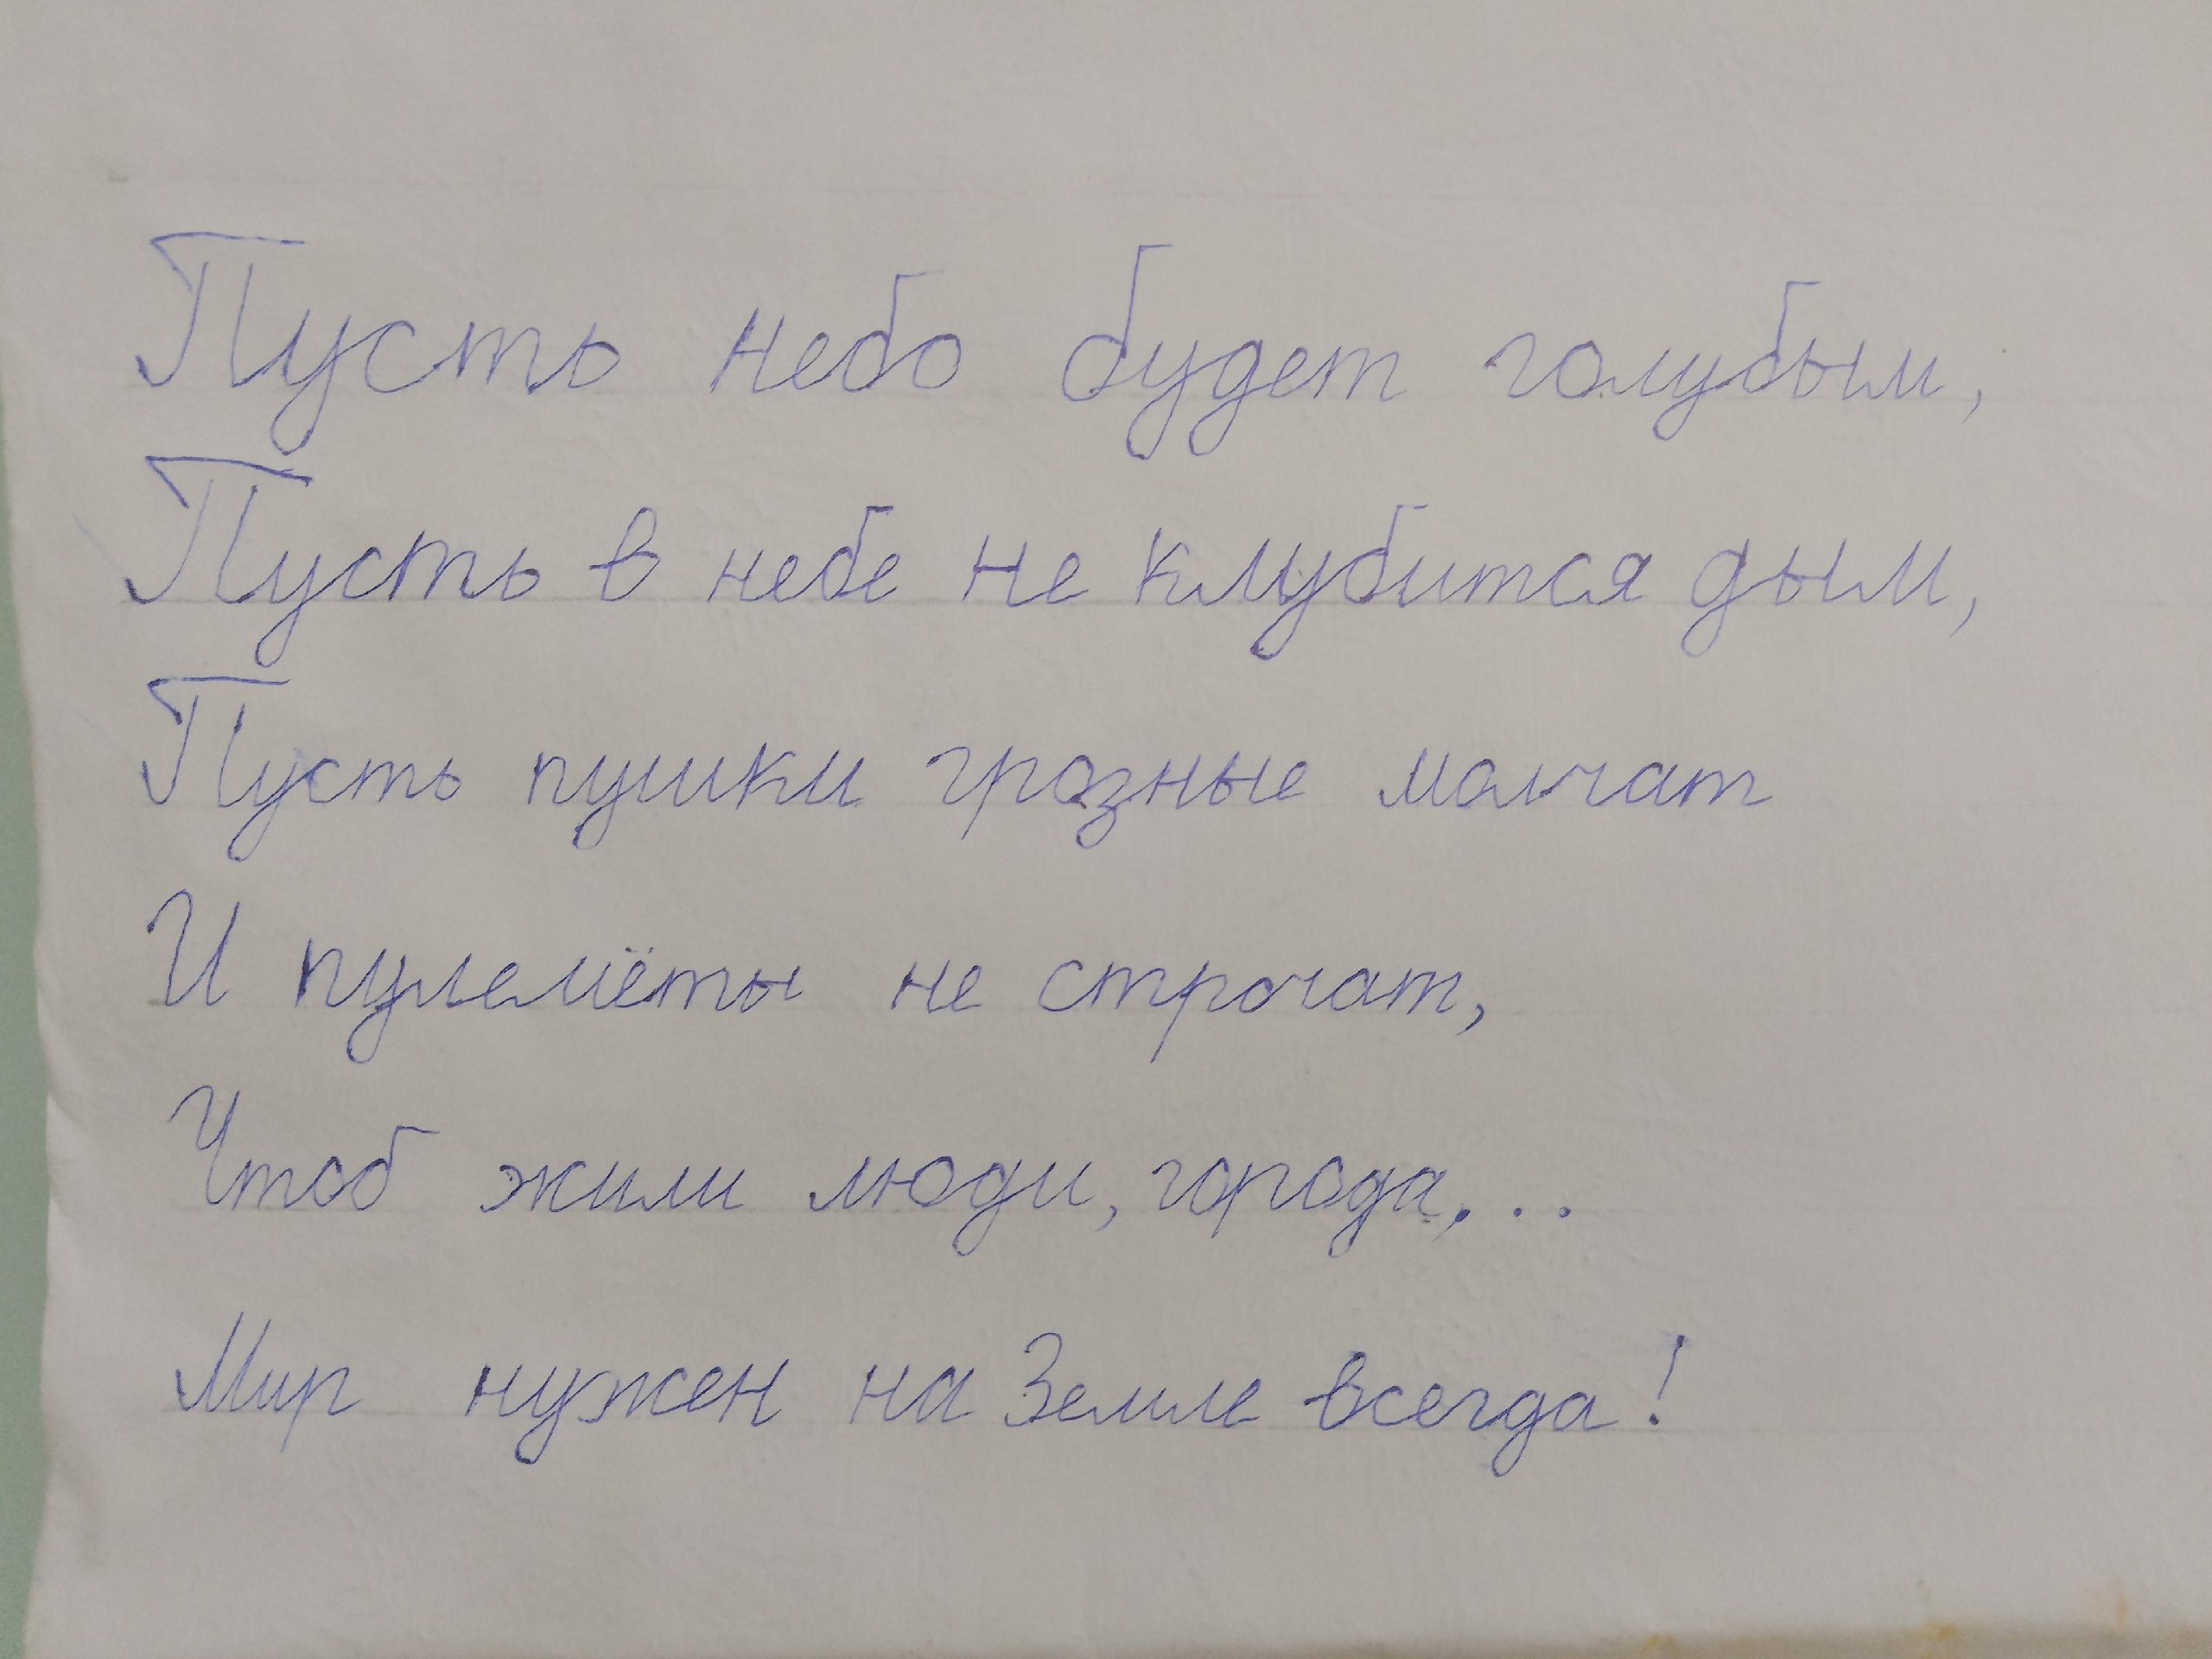 Пусть небо будет голубым,
Пусть в небе не клубится дым,
Пусть пушки грозные молчат
И пулемёты не строчат,
Чтоб жили люди, города,...
Мир нужен на Земле всегда!